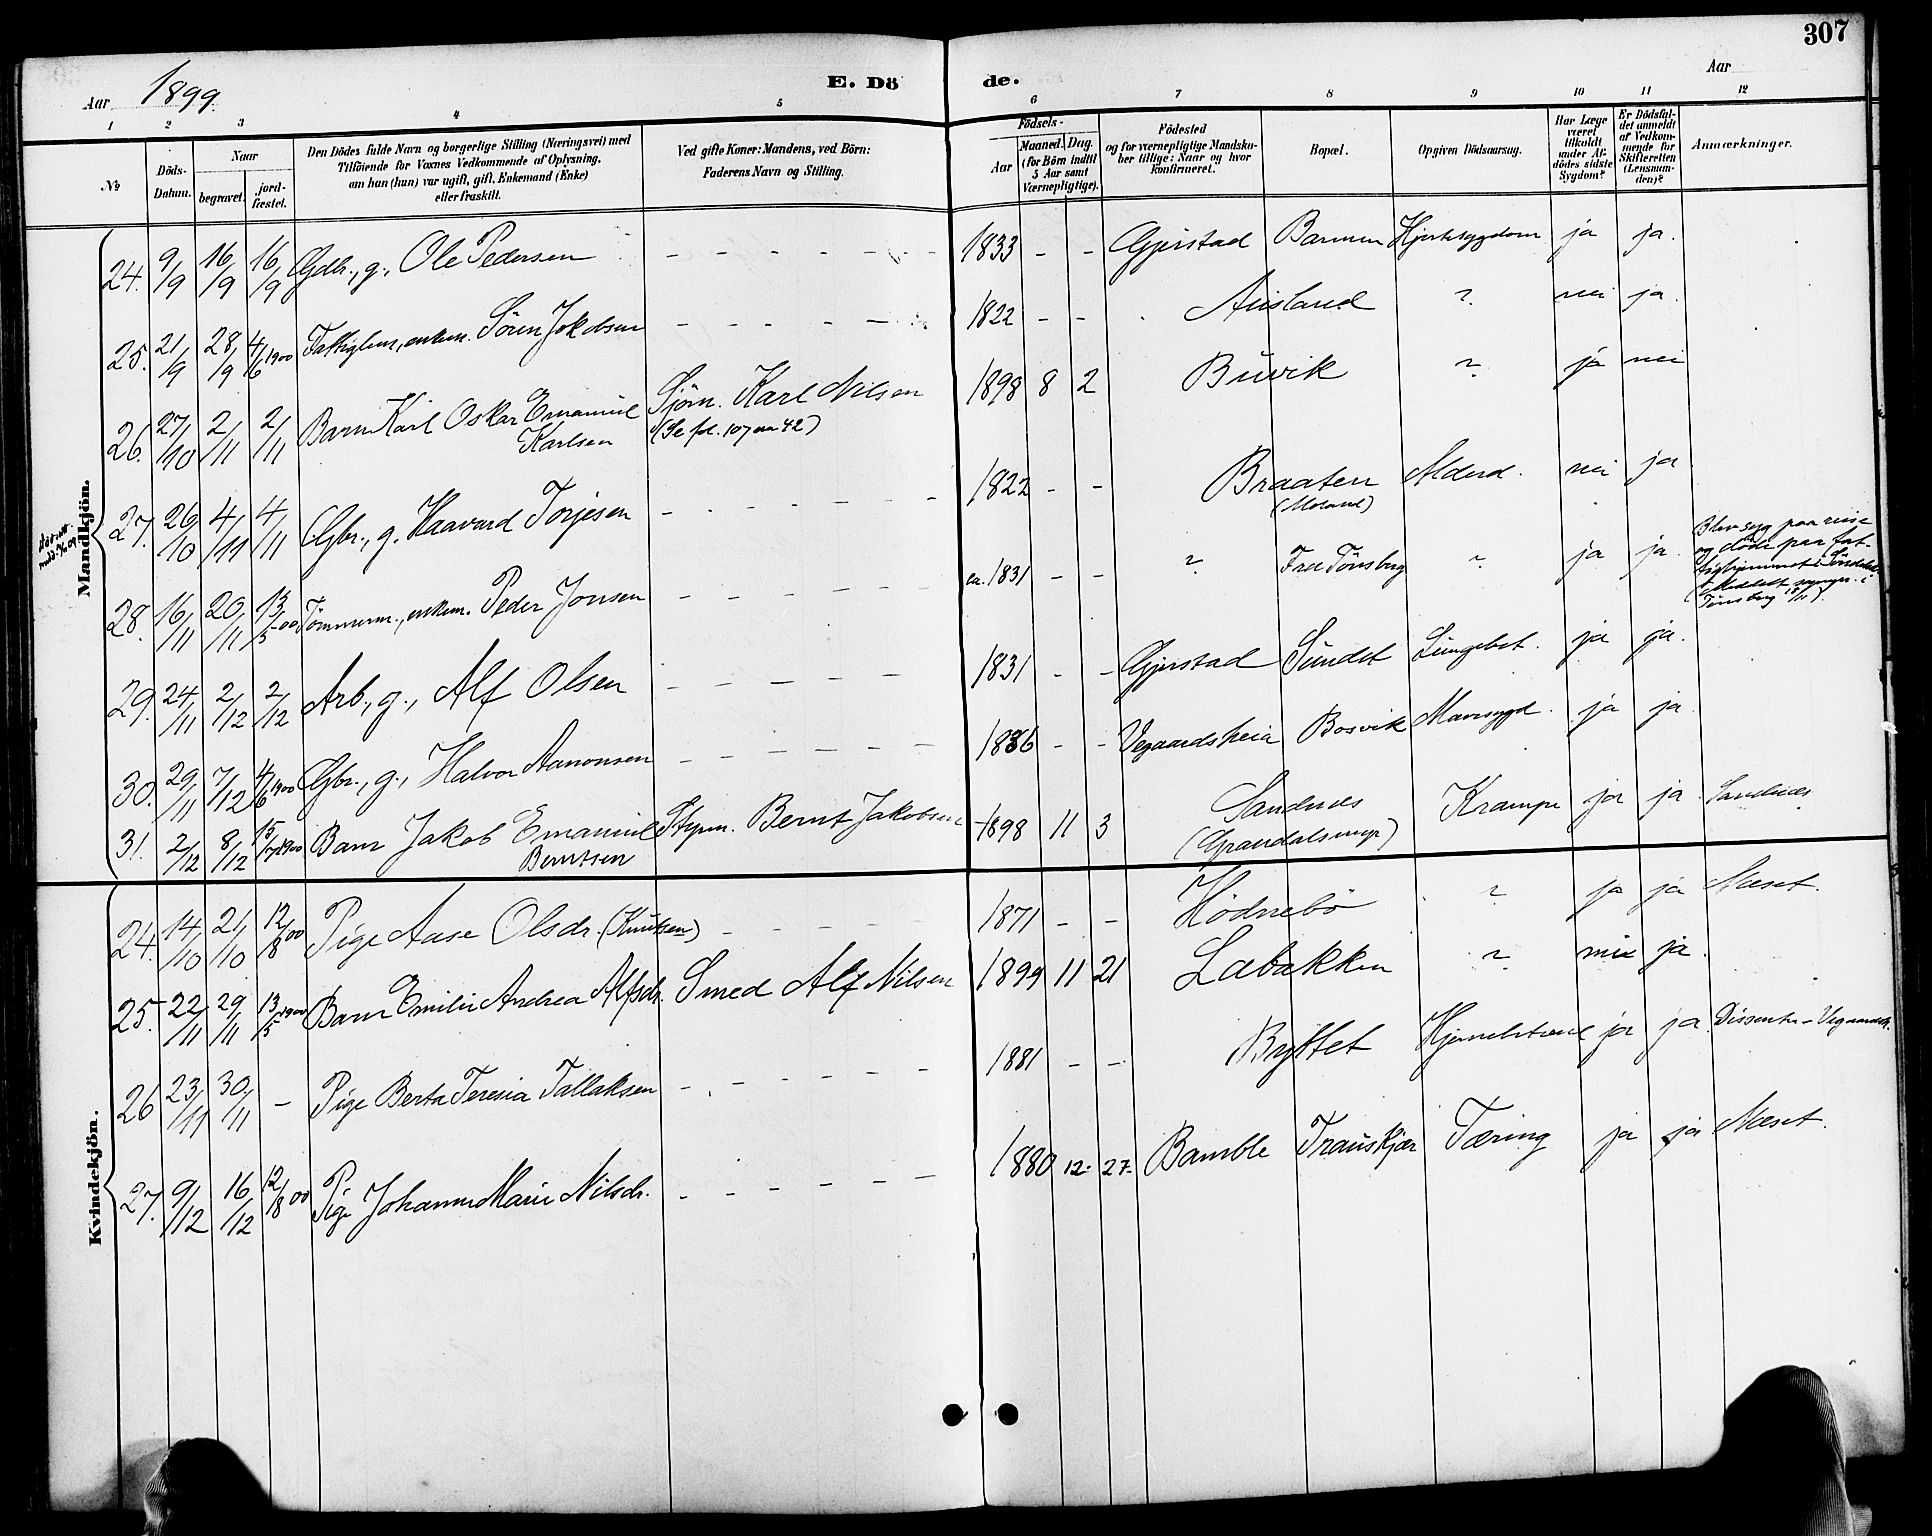 307
Aar 1899.
E. Dö de.
Aar
1 2 3 4 5 6 7 8 9 10 11 12
№
Döds-
Datum.
Naar
begravet.
jord-
fæstet.
Den Dödes fulde Navn og borgerlige Stilling (Næringsvei) med
Tilföiende for Voxnes Vedkommende af Oplysning,
om han (hun) var ugift, gift, Enkemand (Enke)
eller fraskilt.
Ved gifte Koner: Mandens, ved Börn:
Faderens Navn og Stilling.
Födsels-
Aar
Maaned. Dag.
(for Börn indtil
5 Aar samt
Værnepligtige).
Födested
og for værnepligtige Mandska-
ber tillige: Naar og hvor
konfirmeret.
Bopæl.
Opgiven Dödsaarsag.
Har Læge
været
tilkaldt
under Af-
dödes sidste
Sygdom?
Er Dödsfal-
det anmeldt
af Vedkom-
mende for
Skifteretten
(Lensman-
den)?
Anmærkninger.
Mandkjön.
24. 9/9 16/9 16/9 Gdbr., g., Ole Pedersen - - - - - - - 1833 - - Gjerstad Barmen Hjertesygdom ja ja.
25. 21/9 28/9 4/6 1900 Fattiglem, enkem. Sören Jakobsen - - - - - - 1822 - - Ausland ? nei ja.
26. 27/10 2/11 2/11 Barn Karl Oskar Emanuel Karlsen Sjöm. Karl Nilsen (Se fol. 107 nr 42) 1898 8 2 Buvik ? ja nei
27. 26/10 4/11 4/11 Gbr., g. Haavard Torjesen - - - - - - 1822 - - Braaten (Moland) Alderd. nei ja
28. 16/11 20/11 13/5-00 Tömmerm., enkem. Peder Jonsen - - - - - - ca. 1831 - - ? Fra Tönsberg ? ja ja. Blev syg paa reise
og döde paa fat-
tighjemmet i Söndeled
Tönsberg 18/11).
29. 24/11 2/12 2/12 Arb., g., Alf Olsen - - - - - - 1831 - - Gjerstad Sundet Lungebet. ja ja.
30. 29/11 7/12 4/6 1900 Gbr., g., Halvor Aanonsen - - - - - - 1836 - - Vegaardsheia Bosvik Mavesygd. ja ja.
31. 2/12 8/12 15/7 1900 Barn Jakob Emanuel Berntsen Styrm. Bernt Jakobsen 1898 11 3 Sandnes (Grandalsmyr) Krampe ja ja Sandnes
Kvindekjön.
24. 14/10 21/10 12/8 00 Pige Aase Olsdr. (Knutsen) - - - - - 1871 - - Hödnebö ? ja ja Mæset.
25. 22/11 29/11 13/5 1900 Barn Emilie Andrea Alfsdr. Smed Alf Nilsen 1899 11 21 Labakken ? nei ja.
26 23/11 30/11 - Pige Berta Teresia Tallaksen - - - - - - 1881 - - Bryttet ja ja Dissenter - Vegaardsh.
27. 9/12 16/12 12/8 00 Pige Johanne Marie Nilsdr. - - - - - - 1880 12. 27. Bamble Transkjær Tæring ja ja Mæset.